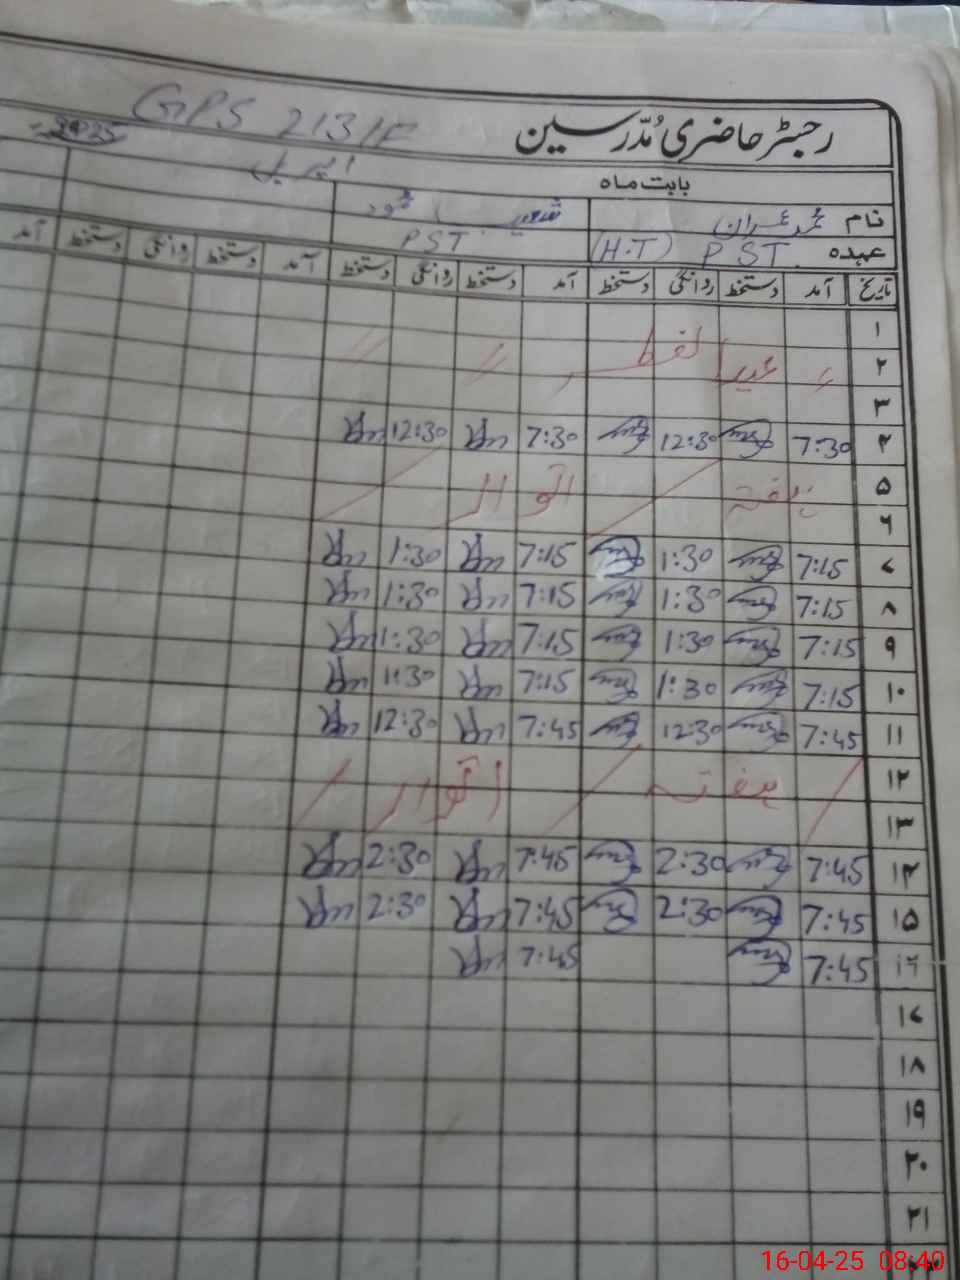 GPS 213/F
رجسٹر حاضری مُدّرسین
بابت ماہ اپریل 2025
نام محمد عمران محمود
عہدہ PST (H.T) PST
تاریخ آمد دستخط روانگی دستخط آمد دستخط روانگی دستخط آمد دستخط روانگی دستخط آمد
۱
۲ 〃 عیدالفطر 〃 〃
۳
۴ 7:30 12:30 7:30 12:30
۵ ہفتہ اتوار
۶
۷ 7:15 1:30 7:15 1:30
۸ 7:15 1:30 7:15 1:30
۹ 7:15 1:30 7:15 1:30
۱۰ 7:15 1:30 7:15 1:30
۱۱ 7:45 12:30 7:45 12:30
۱۲ ہفتہ اتوار
۱۳
۱۴ 7:45 2:30 7:45 2:30
۱۵ 7:45 2:30 7:45 2:30
۱۶ 7:45 7:45
۱۷
۱۸
۱۹
۲۰
۲۱
16-04-25 08:40